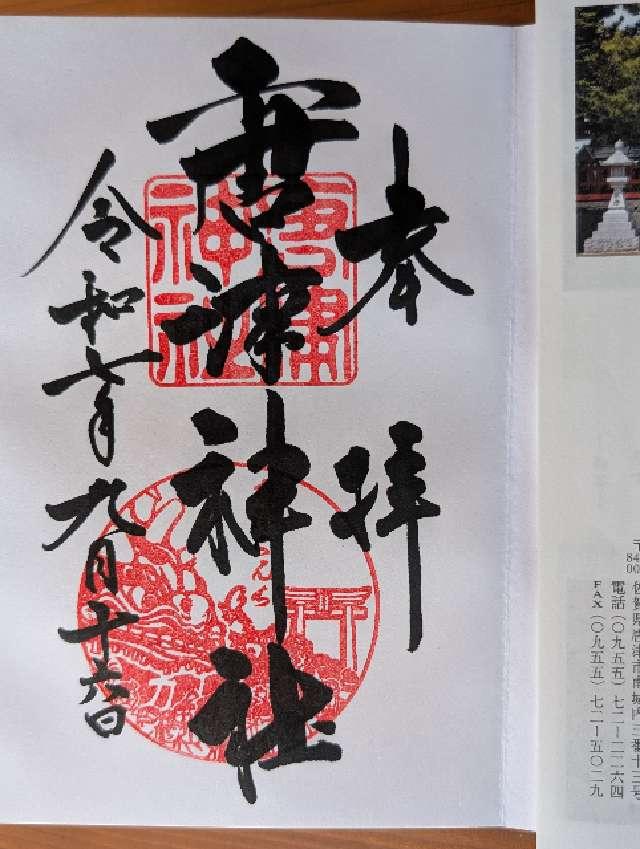 〒
84
00
佐賀県唐津市南城内三番十三号
電話(〇九五五)七二ー二二六四
FAX(〇九五五)七二ー五〇二九
奉拝
唐津神社
唐津
神社
くんち
令和七年九月十六日